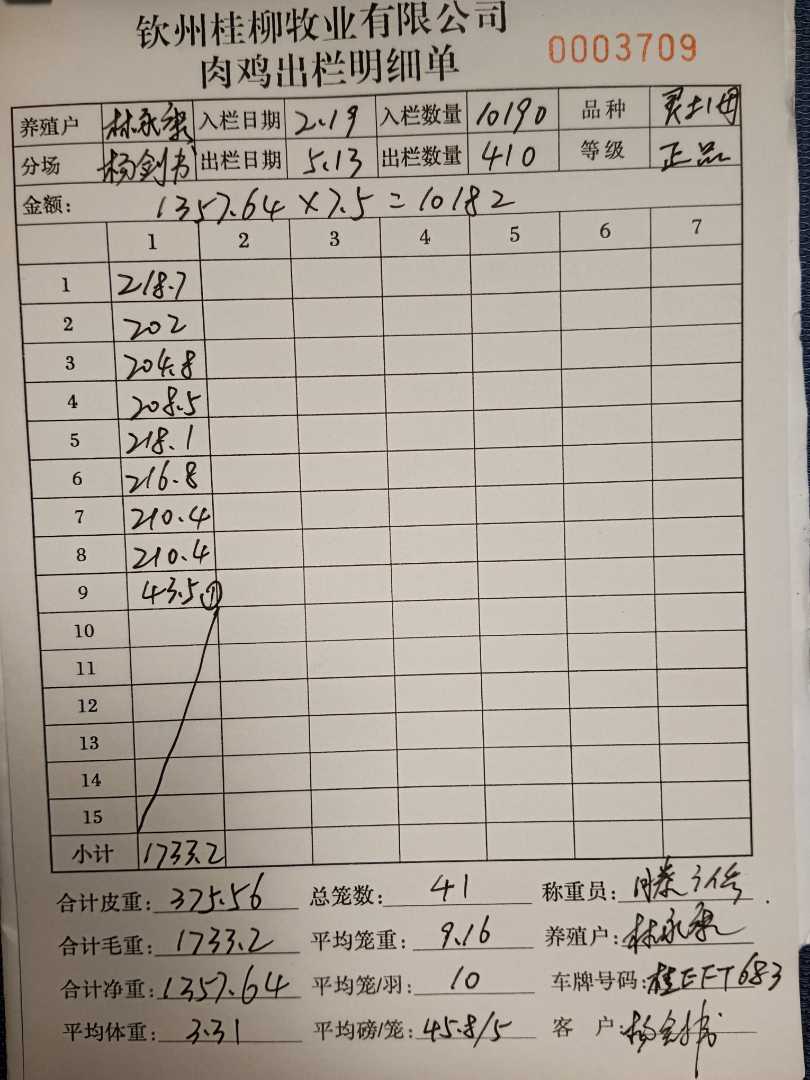 钦州桂柳牧业有限公司
肉鸡出栏明细单 0003709
养殖户 林永康 入栏日期 2.19 入栏数量 10190 品种 灵土1母
分场 杨剑书 出栏日期 5.13 出栏数量 410 等级 正品
金额: 1357.64×7.5=10182
1 2 3 4 5 6 7
1 218.7
2 202
3 204.8
4 208.5
5 218.1
6 216.8
7 210.4
8 210.4
9 43.5①
10
11
12
13
14
15
小计 1733.2
合计皮重: 375.56 总笼数: 41 称重员:
合计毛重: 1733.2 平均笼重: 9.16 养殖户: 林永康
合计净重: 1357.64 平均笼/羽: 10 车牌号码: 桂EFT683
平均体重: 3.31 平均磅/笼: 45.8/5 客 户: 杨剑书